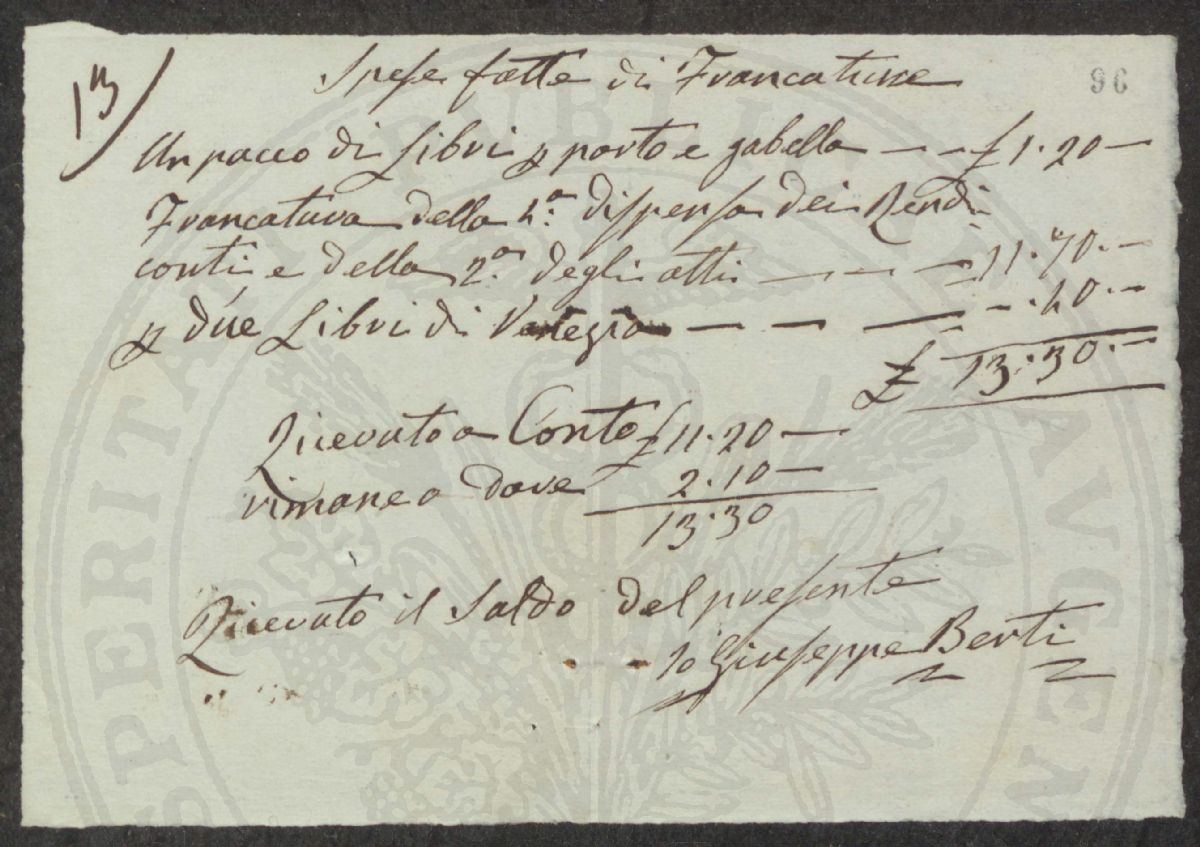 13)
96
Spese fatte di Francature
Un pacco di Libri p porto e gabella — — £ 1.20 —
Francatura della 4.a dispensa dei Rendi
conti e della 2.a degli atti — — — 11.70. —
p due Libri di Venezia — — — — . 40. —
£ 13.30. —
Ricevuto a Conto £ 11.20 —
rimane a dare 2.10 —
13.30
Ricevuto il Saldo del presente
Io Giuseppe Berti
PERITAT PUBLICAE AUGEN